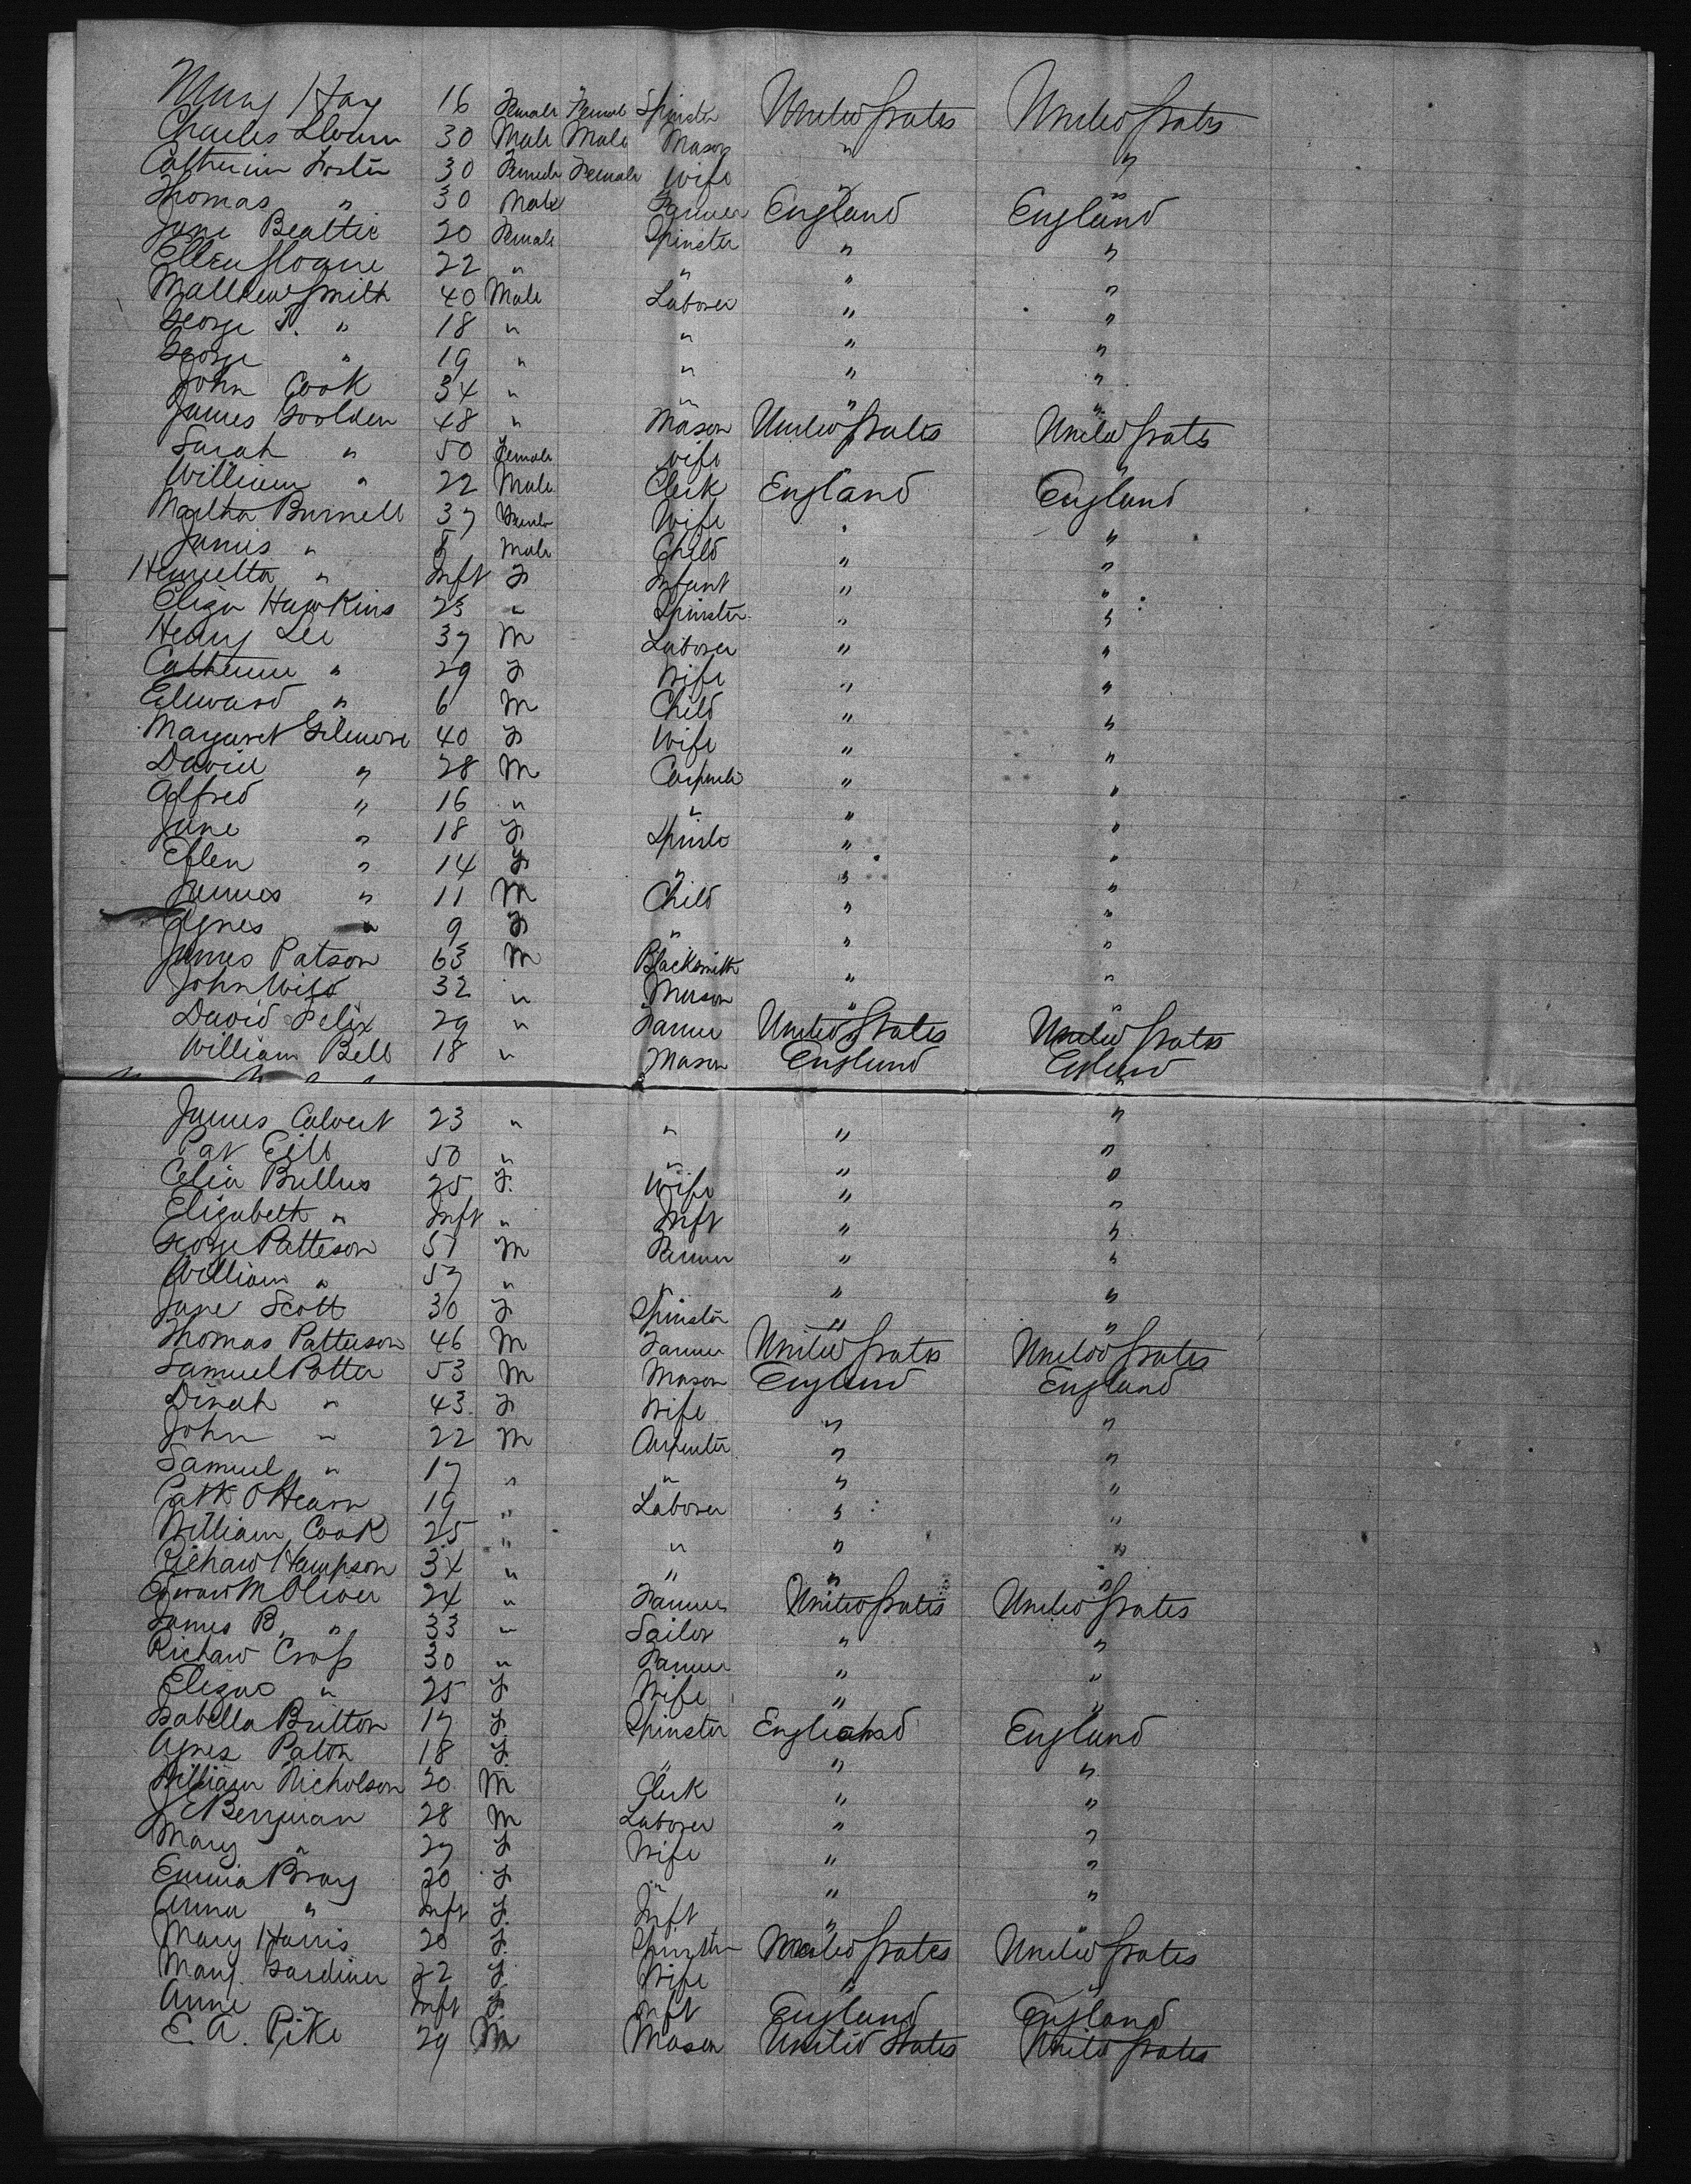 Mary Hay 16 Female Female Spinster United States United States
Charles 30 Male Male Mason " "
Catherine Foster 30 Female Female Wife " "
Thomas " 30 Male Farmer England England
Jane Beattie 20 Female Spinster " "
Ellen Sloane 22 " " " "
Matthew Smith 40 Male Laborer " "
George T. " 18 " " " "
George " 19 " " " "
John Cook 34 " " " "
James Goolden 48 " Mason United States United States
Sarah " 50 Female Wife " "
William " 22 Male Clerk England England
Martha Burnell 37 Female Wife " "
James " 8 Male Child " "
Henrietta " Inft F Infant " "
Eliza Hawkins 25 " Spinster " "
Henry Lee 37 M Laborer " "
Catherine " 29 F Wife " "
Edward " 6 M Child " "
Margaret Gilmore 40 F Wife " "
David " 28 M Carpenter " "
Alfred " 16 " " " "
Jane " 18 F Spinster " "
Ellen " 14 F " " "
James " 11 M Child " "
Agnes " 9 F " " "
James Patson 63 M Blacksmith " "
John Wild 32 " Mason " "
David Felix 29 " Farmer United States United States
William Bell 18 " Mason England England
James Calvert 23 " " " "
Pat 50 " " " "
Celia Bullus 25 F. Wife " "
Elizabeth " Inft " Inft " "
George Patteson 51 M Farmer " "
William " 57 " " " "
Jane Scott 30 F Spinster " "
Thomas Patterson 46 M Farmer United States United States
Samuel Potter 53 M Mason England England
Dinah " 43 F Wife " "
John " 22 M Carpenter " "
Samuel " 17 " " " "
Patk O'Hearn 19 " Laborer " "
William Cook 25 " " " "
Richard Hampson 34 " " " "
Edward M Oliver 24 " Farmer United States United States
James B. " 33 " Sailor " "
Richard Cross 30 " Farmer " "
Eliza " 25 F Wife " "
Isabella Britton 17 F Spinster England England
Agnes Paton 18 F. " " "
William Nicholson 20 M Clerk " "
J E Berryman 28 M Laborer " "
Mary " 27 F Wife " "
Emma Bray 20 F " " "
Anna " Inft F. Inft " "
Mary Harris 20 F. Spinster United States United States
Mary Gardiner 22 F Wife " "
Anne " Inft F Inft England England
E. A. Pike 29 M Mason United States United States